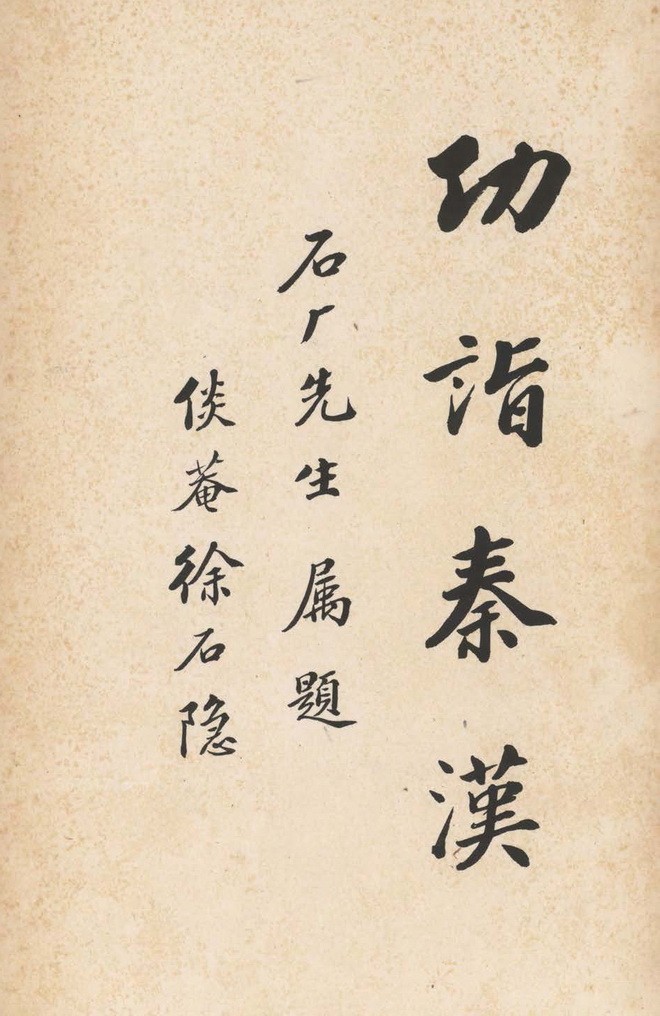 功詣秦漢
石厂先生属題
倓菴徐石隐